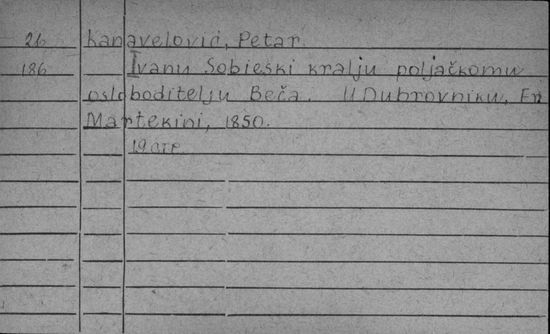 26 Kanavelović, Petar.
186 Ivanu Sobieski kralju poljačkomu
osloboditelju Beča. U Dubrovniku, Fr.
Martekini, 1850.
19 стр.